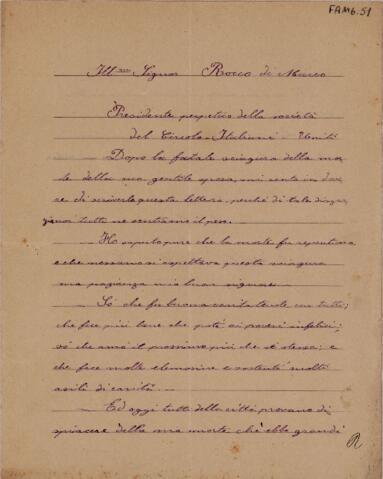 FAM6.51
Ill.mo Signor Rocco di Marco
Presidente perpetuo della società
del Circolo Italiani - Uniti
Dopo la fatale sciagura della mor
te della sua gentile sposa, mi sento in dove
re di scriverle questa lettera, perché di tale disgra
zia noi tutti ne sentiamo il peso.
Ho saputo pure che la morte fu repentina
e che nessuno si aspettava questa sciagura
ma pazienza mio buon signore.
Sò che fu buona caritatevole con tutti;
che fece più bene che poté ai poveri infelici;
sò che amò il prossimo più che sé stessa; e
che fece molte elemosine e sostenté molti
asili di carità.
Ed oggi tutti della città provano di
spiacere della sua morte, ch'ebbe grandi
R